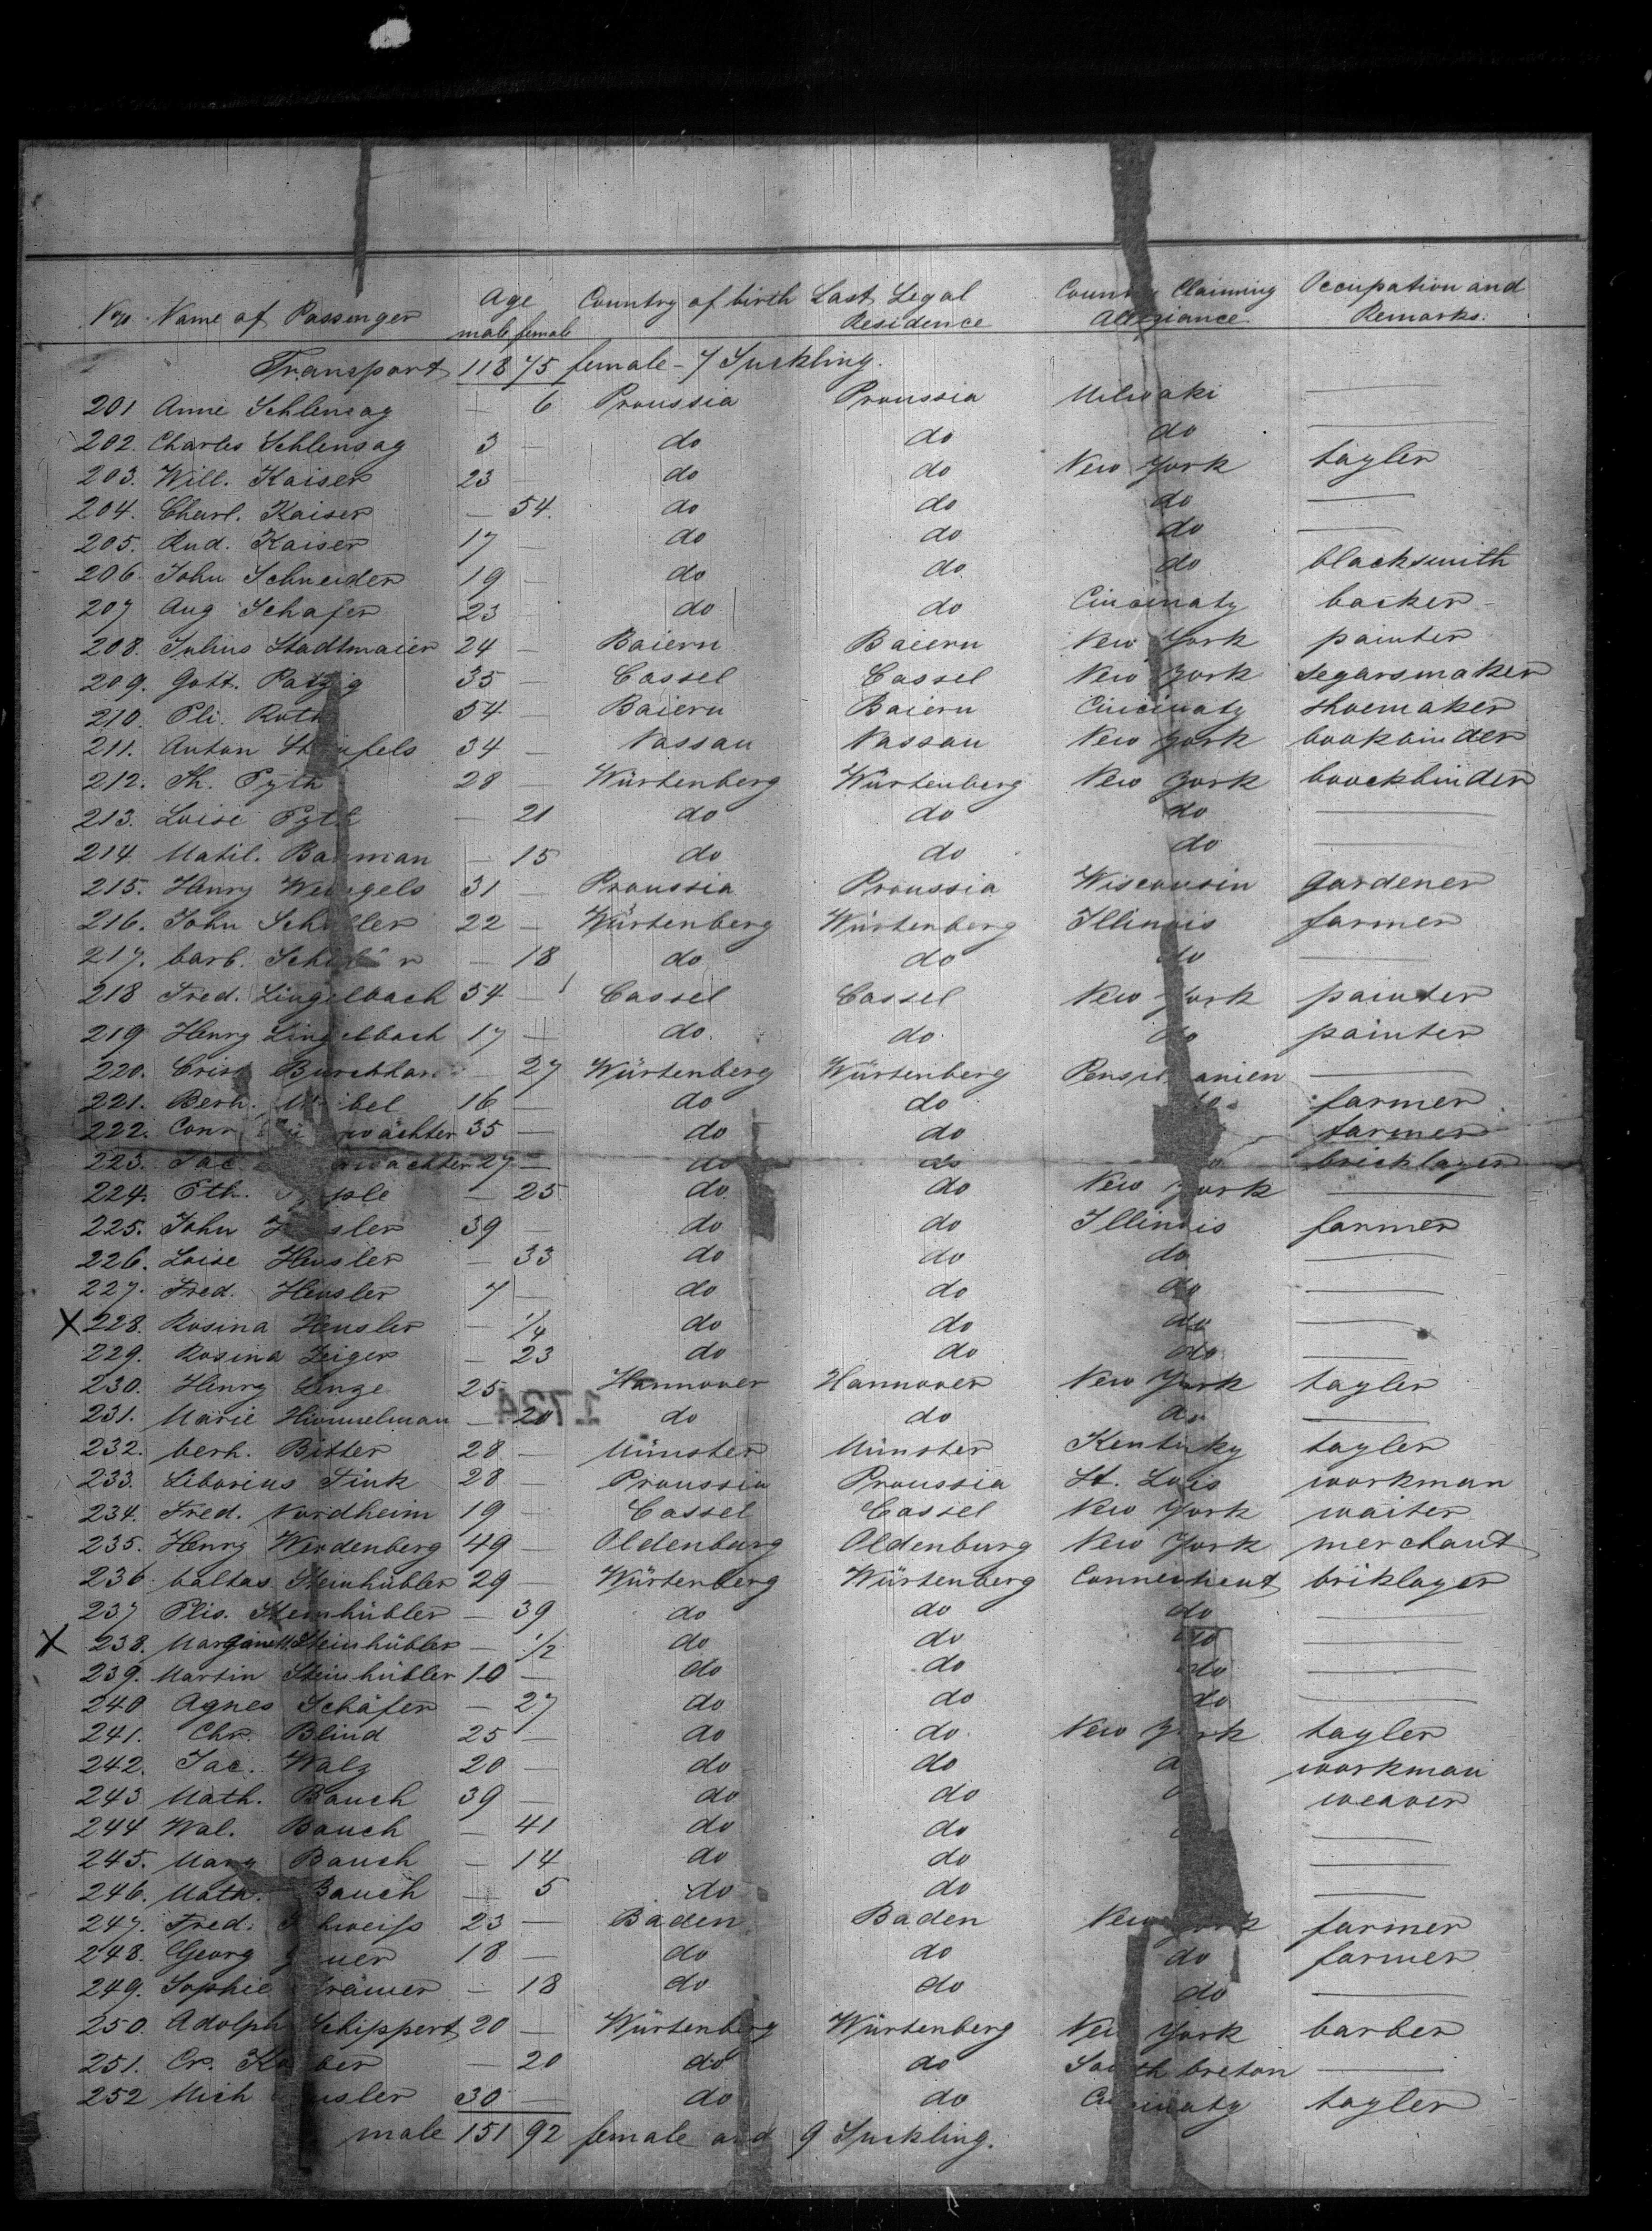 No. Name of Passenger Age male female Country of birth Last Legal Residence Country Claiming Allegiance Occupation and Remarks:
Transport 118 75 female - 7 Suckling.
201 Anne Schlensag — 6 Proussia Proussia Milwaki —
202. Charles Schlensag 3 — do do do —
203. Will. Kaiser 23 — do do New York tayler
204. Charl. Kaiser — 54. do do do —
205. Rud. Kaiser 17 — do do do —
206. John Schneider 19 — do do. do blacksmith
207 Aug Schafer 23 — do do Cincinaty backer
208. Julius Stadtmaier 24 — Baiern Baiern New York painter
209. Gott. Patzig 35 — Cassel Cassel New York segarsmaker
210. Pli. Roth 54 — Baiern Baiern Cincinaty shoemaker
211. Anton 34 — Nassau Nassau New York bookbinder
212. Th. Pyth 28 — Würtenberg Würtenberg New York boockbinder
213. Loise Pyth — 21 do do do —
214. Matil. Bauman — 15 do do do —
215. Henry 31 — Proussia Proussia Wisconsin gardener
216. John 22 — Würtenberg Würtenberg Illinois farmer
217. barb. — 18 do do do —
218 Fred. Lingelbach 54 — Cassel Cassel New York painter
219 Henry Lingelbach 17 — do. do do painter
220. Crist — 27 Würtenberg Würtenberg —
221. Berh. 16 — do do do farmer
222. Conr 35 — do do farmer
223. Jac 27 — do do bricklayer
224. Eth. — 25 do do New York —
225. John Hensler 39 — do do Illinois farmer
226. Loise Hensler — 33 do do do —
227. Fred. Hensler 7 — do do do —
X 228. Rosina Hensler — 1/4 do do do —
229. Rosina Zeiger — 23 do do do —
230. Henry Lenze 25 — Hannover Hannover New York tayler
1734
231. Marie Himmelman — 20 do do do —
232. berh. Bitter 28 — Münster Münster Kentuky tayler
233. Liborius Fink 28 — Proussia Proussia St. Lois workman
234. Fred. Nordheim 19 — Cassel Cassel New York waiter
235. Henry Werdenberg 49 — Oldenburg Oldenburg New York merchant
236. baltas Steinhübler 29 — Würtenberg Würtenberg Connecticut briklayer
237 Elis. Steinhübler — 39 do do do —
X 238. Steinhübler — 1/2 do do do —
239. Martin Steinhübler 10 — do do do —
240 Agnes Schäfer — 27 do do do —
241. Chr. Blind 25 — do do. New York tayler
242. Jac. Walz 20 — do do workman
243 Math. Bauch 39 — do do weaver
244 Wal. Bauch — 41 do do —
245. Mary Bauch — 14 do do —
246. Math. Bauch — 5 do do —
247. Fred. Schweiss 23 — Baden Baden New York farmer
248. Georg 18 — do do do farmer
249. Sophie Krämer — 18 do do do —
250. Adolph Schippert 20 — Würtenberg Würtenberg New York barber
251. Cr. — 20 do do South breton —
252 Mich 30 — do do Cincinaty tayler
male 151 92 female and 9 Suckling.